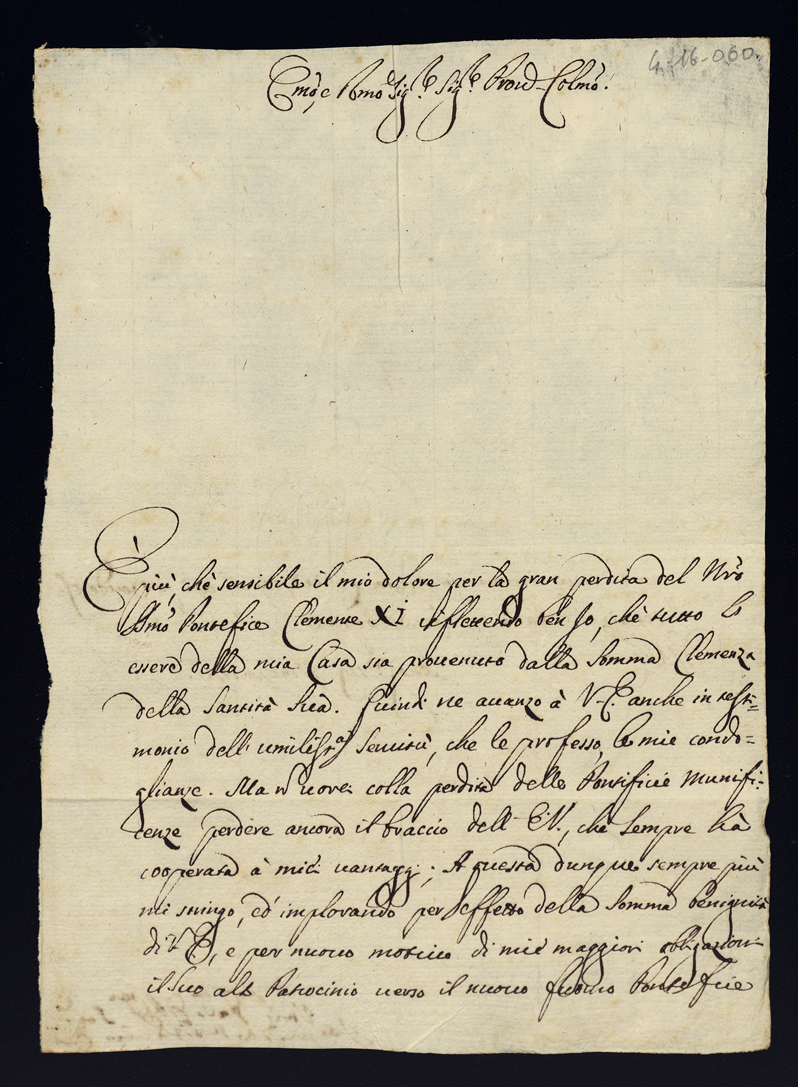 4-16-060.
Emo, e Rmo Sig.re Sig.re Prōn Colmo.
È più, chè sensibile il mio dolore per la gran perdita del Nrō
Smō Pontefice Clemente XI riflettendo ben Io, chè tutto lo
essere della mia Casa sia prouenuto dalla Somma Clemenza
della Santità Sua. Quindi ne auanzo à V.E. anche in testi=
monio dell' umiliss.a Seruitù, che le professo, le mie condo=
glianze. Ma ñ uorei colla perdita delle Pontificie munifi=
cenze perdere ancora il braccio dell' E.V., chè sempre hà
cooperato à miei uantaggi; A questa dunque sempre più
mi stringo, ed' implorando per effetto della Somma benignità
di V.E., e per nuouo motiuo di mie maggiori obligazioni
il Suo alto Patrocinio uerso il nuouo futuro Pontefice